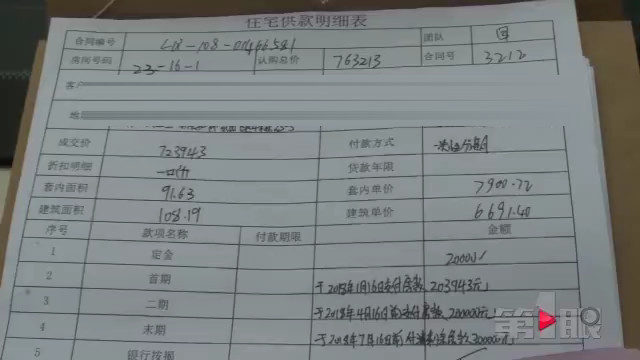 住宅供款明细表
合同编号 团队 回
房间号码 23-16-1 认购总价 763213 合同号 3212
客户
地
成交价 723943 付款方式 一次性分期
折扣明细 贷款年限
套内面积 91.63 套内单价 7900.72
建筑面积 108.19 建筑单价 6691.40
序号 款项名称 付款期限 金额
1 定金 20000
2 首期 于2018年1月16日支付房款 203943元
3 二期 于2018年4月16日前支付房款 200000元
4 末期 于2018年7月16日前 300000元
5 银行按揭
第1眼